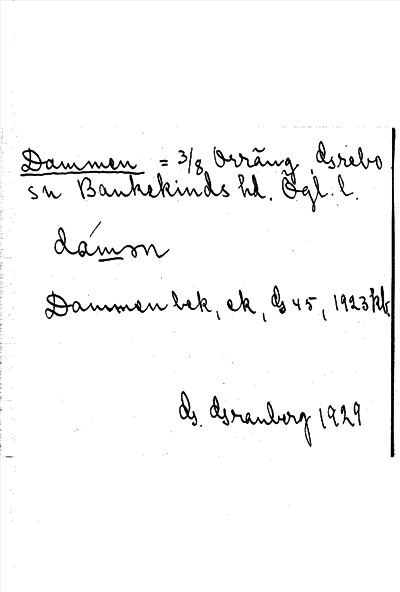 Dammen = 3/8 Orräng, Grebo
sn Bankekinds hd. Ögl. l.
dámən
Dammen bek, ek, G 45, 1923 kb
G. Granberg 1929